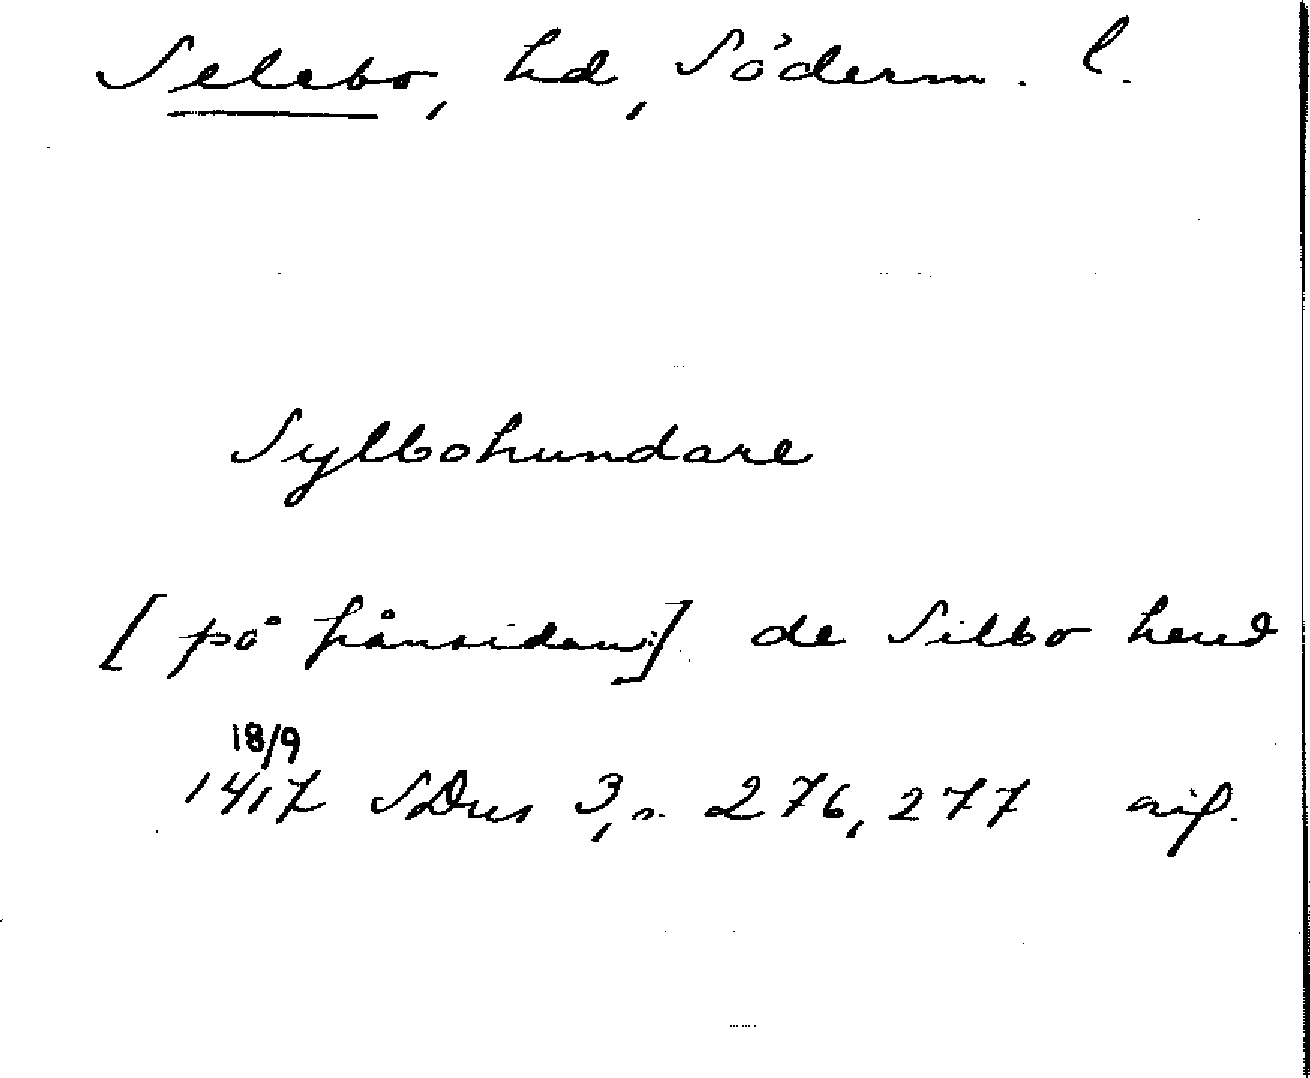 Selebo, hd, Söderm. l.
Sylbohundare
[på frånsidan:] de Silbo hund
18/9
1417 SDns 3, s. 276, 277 avs.